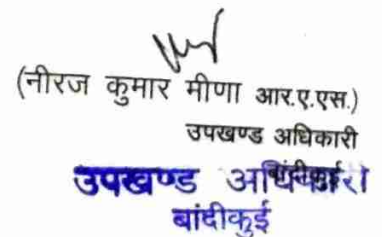 (नीरज कुमार मीणा आर.ए.एस.)
उपखण्ड अधिकारी
बांदीकुई
उपखण्ड अधिकारी
बांदीकुई